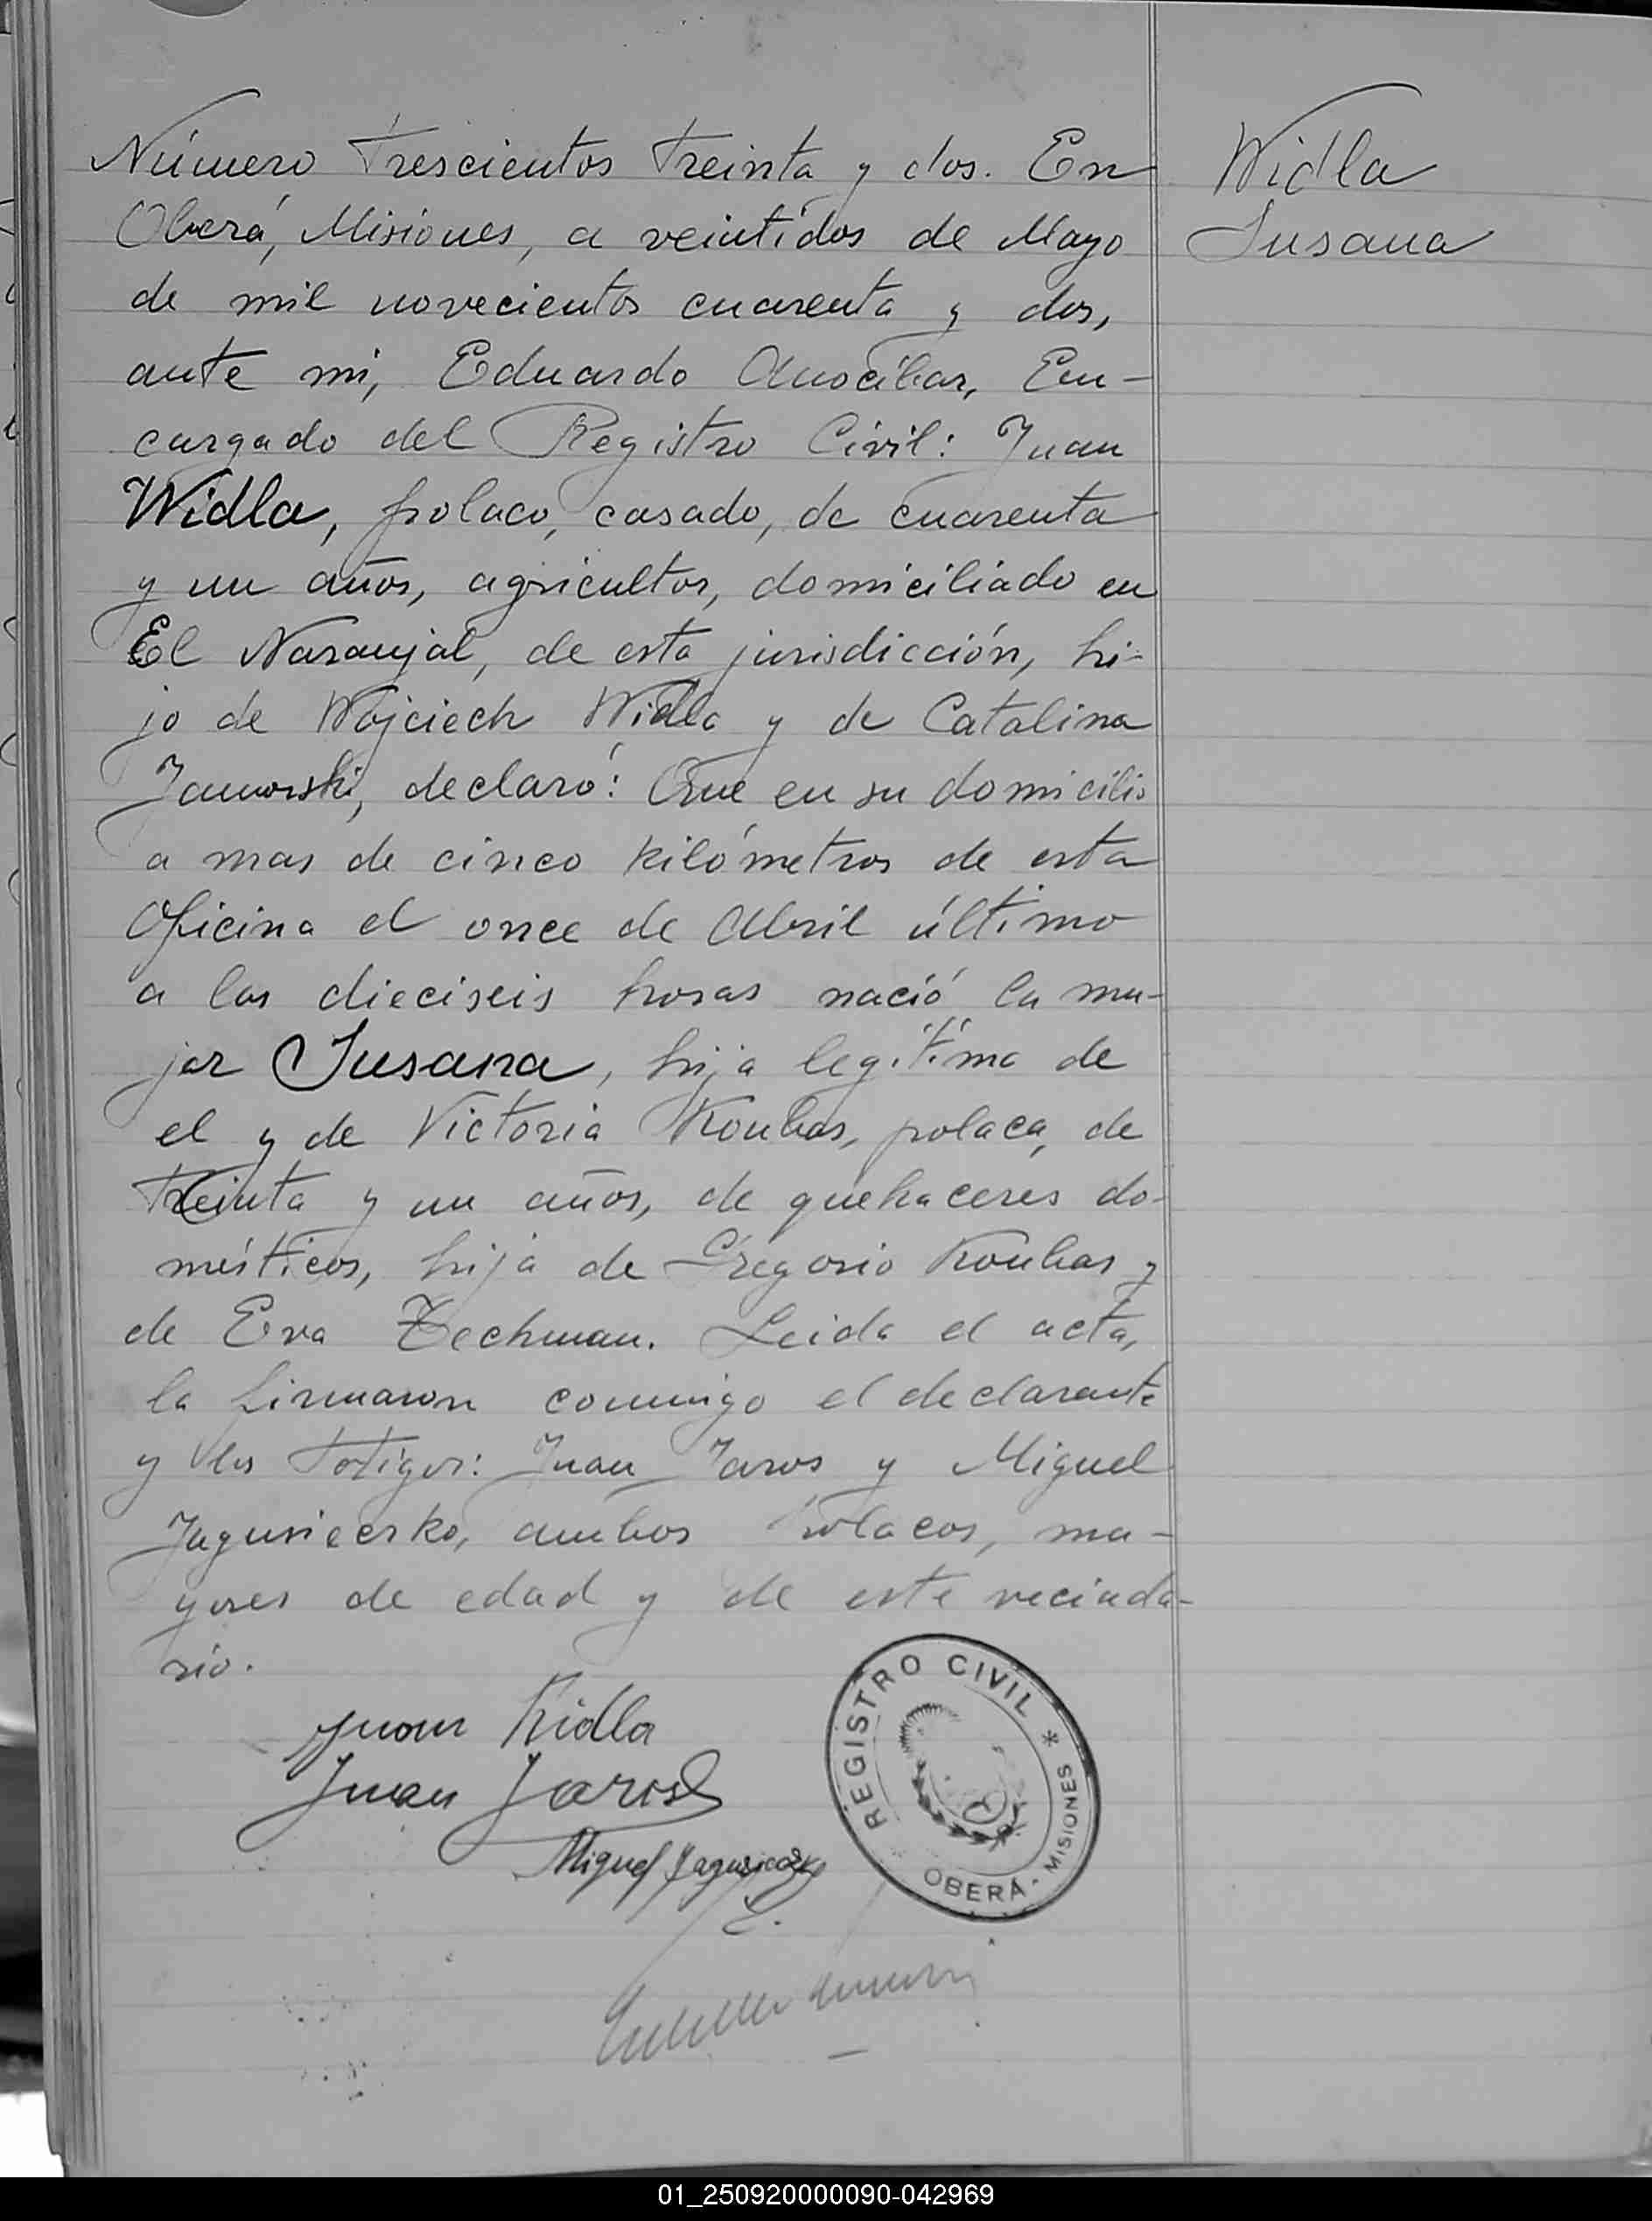 Número trescientos treinta y dos. En
Oberá, Misiones, a veintidos de Mayo
de mil novecientos cuarenta y dos,
ante mi, Eduardo Anocibar, En-
cargado del Registro Civil: Juan
Widla, polaco, casado, de cuarenta
y un años, agricultor, domiciliado en
El Naranjal, de esta jurisdicción, hi-
jo de Wojciech Widla y de Catalina
declaró: Que en su domicilio
a mas de cinco kilómetros de esta
Oficina el once de Abril último
a las dieciseis horas nació la mu-
jer Susana, hija legítima de
el y de Victoria Koubas, polaca, de
treinta y un años, de quehaceres do-
mésticos, hija de Gregorio Koubas y
de Eva Techman. Leida el acta,
la firmaron conmigo el declarante
y los testigos: Juan Jaros y Miguel
ambos polacos, ma-
yores de edad y de este vecinda-
rio.
Widla
Susana
Juan Widla
Juan Jaros
Miguel
REGISTRO CIVIL *
OBERÁ - MISIONES
01_250920000090-042969